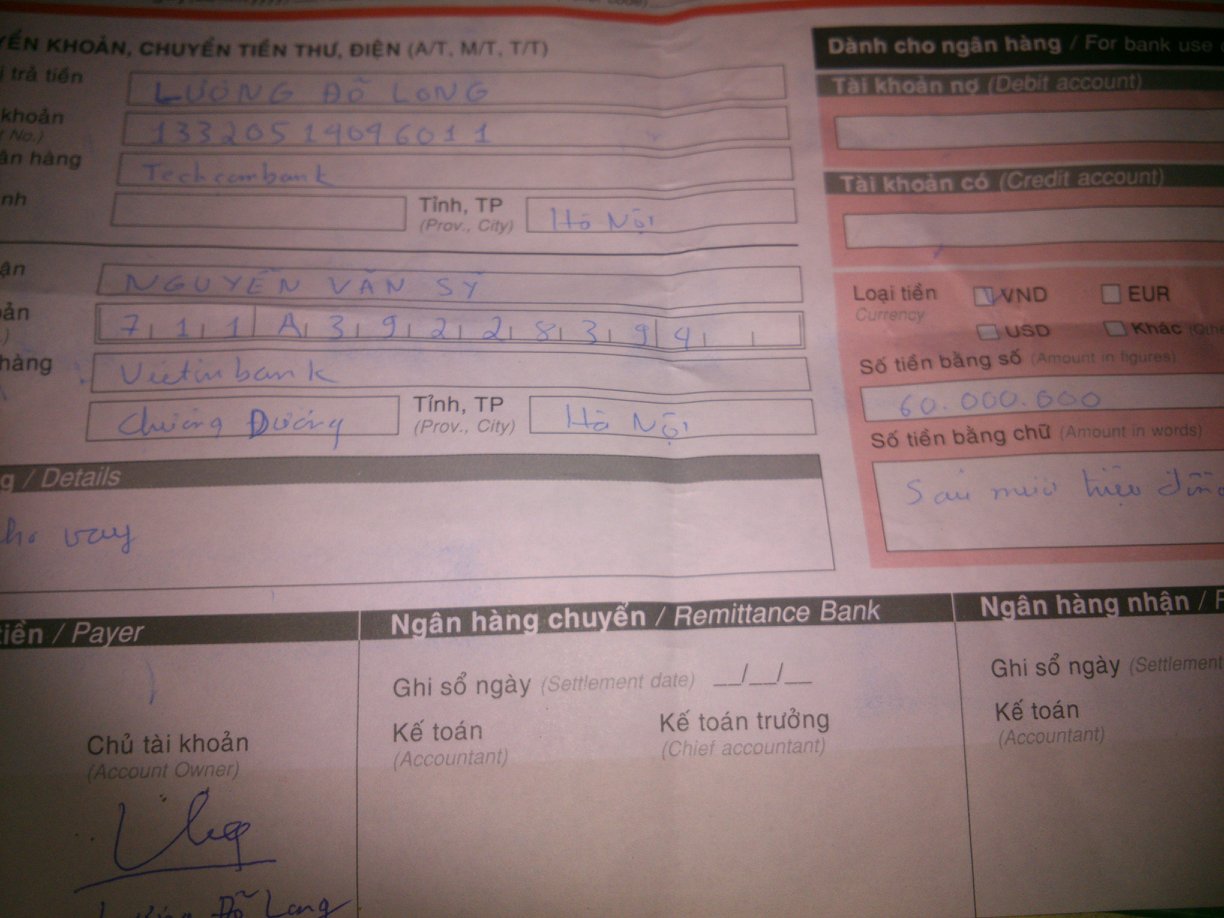 YỂN KHOẢN, CHUYỂN TIỀN THƯ, ĐIỆN (A/T, M/T, T/T)
i trả tiền LƯƠNG ĐỖ LONG
khoản 13320519096011
No.)
ân hàng Techcombank
nh Tỉnh, TP Hà Nội
(Prov., City)
ận NGUYỄN VĂN SỸ
oản 711A39228394
.)
hàng Vietinbank
Chương Dương Tỉnh, TP Hà Nội
(Prov., City)
g / Details
cho vay
Dành cho ngân hàng / For bank use
Tài khoản nợ (Debit account)
Tài khoản có (Credit account)
Loại tiền VND EUR
Currency
USD Khác
Số tiền bằng số (Amount in figures)
60.000.000
Số tiền bằng chữ (Amount in words)
Sáu mươi triệu đồng
tiền / Payer
Chủ tài khoản
(Account Owner)
Lương Đỗ Long
Ngân hàng chuyển / Remittance Bank
Ghi sổ ngày (Settlement date) __/__/__
Kế toán Kế toán trưởng
(Accountant) (Chief accountant)
Ngân hàng nhận /
Ghi sổ ngày (Settlement
Kế toán
(Accountant)